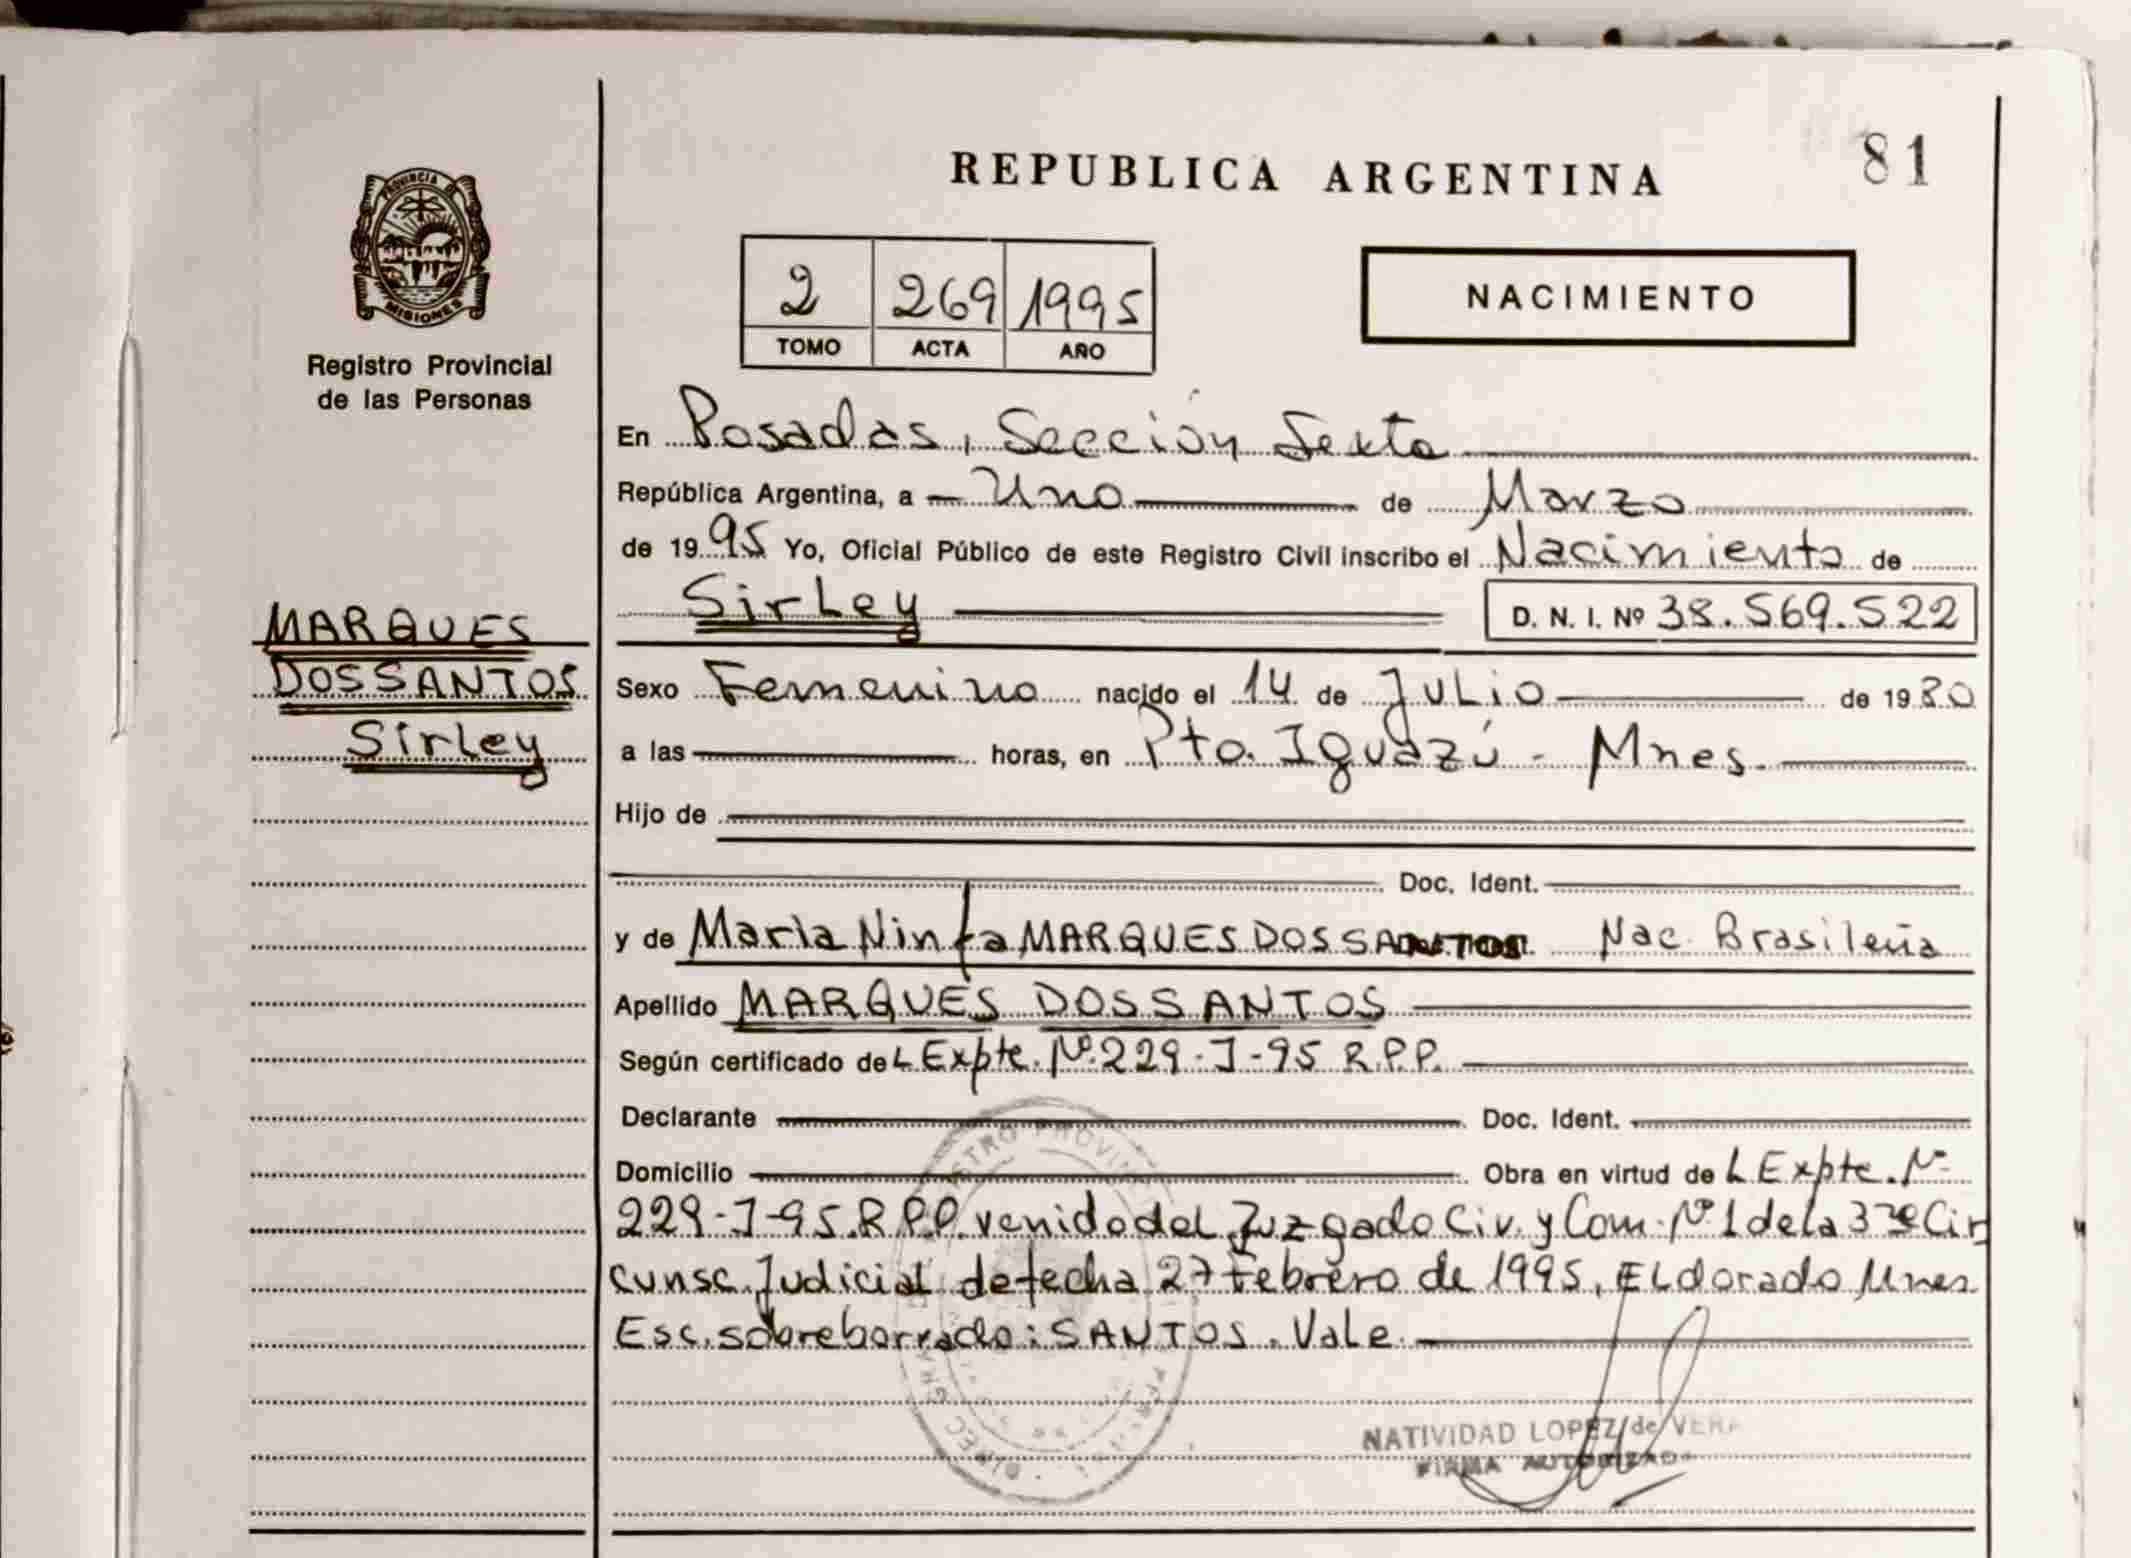 81
REPUBLICA ARGENTINA
PROVINCIA DE
MISIONES
Registro Provincial
de las Personas
2 269 1995
TOMO ACTA AÑO
NACIMIENTO
En Posadas, Sección Sexta
República Argentina, a Uno de Marzo
de 1995 Yo, Oficial Público de este Registro Civil inscribo el Nacimiento de
Sirley D. N. I. Nº 38.569.522
MARQUES
DOS SANTOS
Sirley
Sexo Femenino nacido el 14 de Julio de 1980
a las horas, en Pto. Iguazú - Mnes.
Hijo de
Doc. Ident.
y de María Ninfa MARQUES DOS SANTOS Nac Brasileña
Apellido MARQUES DOS SANTOS
Según certificado del Expte. Nº 229-J-95 R.P.P.
Declarante Doc. Ident.
Domicilio Obra en virtud del Expte. Nº
229-J-95.R.P.P. venido del Juzgado Civ. y Com. Nº 1 de la 3ra Cir
cunsc. Judicial de fecha 27 febrero de 1995, Eldorado Mnes.
Esc. sobreborrado: SANTOS. Vale.
NATIVIDAD LOPEZ de VERA
FIRMA AUTORIZADO